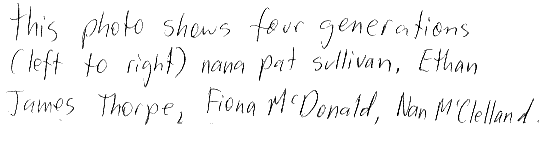 This photo shows four generations
(left to right) nana pat sullivan, Ethan
James Thorpe, Fiona McDonald, Nan McClelland.